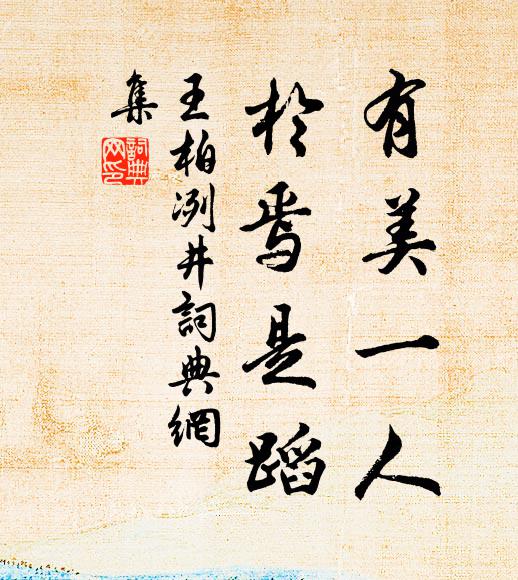 有美一人
於焉是蹈
王柏冽井詞典網
集
詞典網印